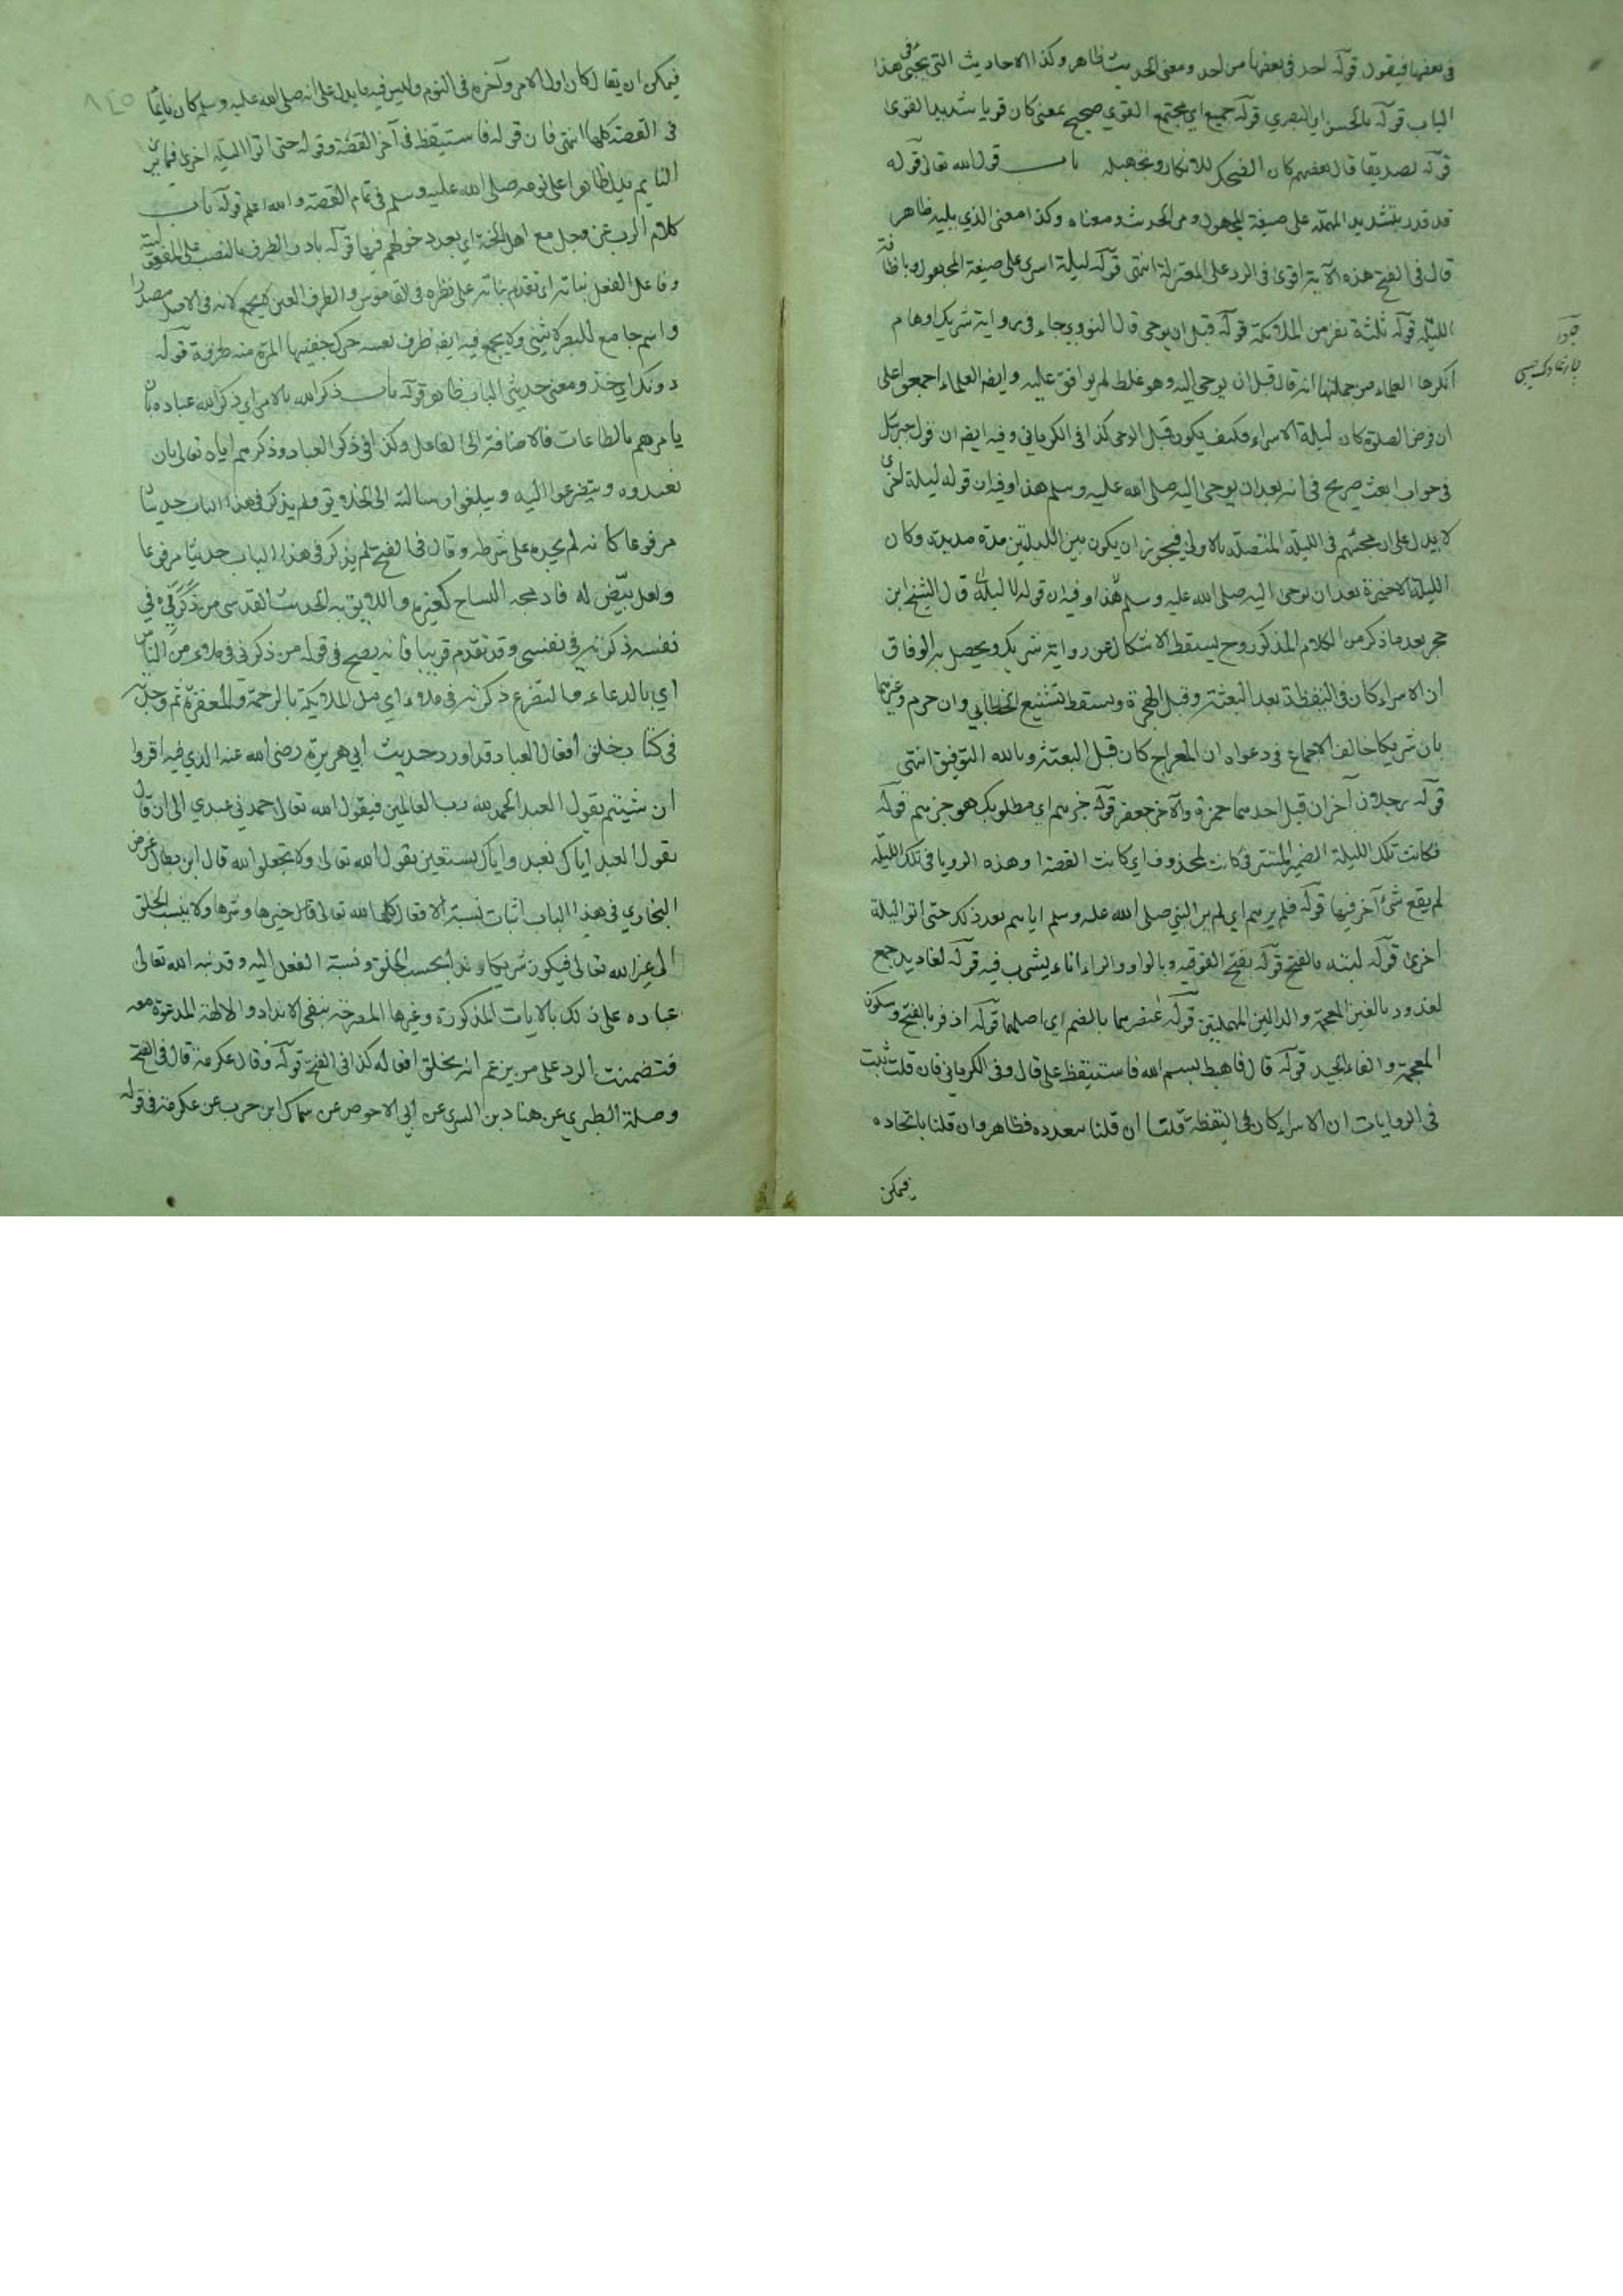 في بعضها فيقول قوله احد في بعضها من احد ومعنى الحديث ظاهر وكذا الاحاديث التي تجئ في هذا
الباب قوله بالحسن اي البصري قوله جميع اي مجتمع القوي صحيح بمعنى كان قويا شديد القوى
قوله تصديقا قال بعضهم كان الضحك للانكار وتجهيله باب قول الله تعالى قوله
قد قدر بتشديد المهملة على صيغة المجهول ومن الحديث ومعناه وكذا معنى الذي يليه ظاهر
قال في الفتح هذه الآية اقوى في الرد على المعتزلة انتهى قوله ليلة اسرى على صيغة المجهول وباضافة
الليلة قوله ثلثة نفر من الملائكة قوله قبل ان يوحى قال النووي جاء في رواية شريك اوهام
انكرها العلماء من جملتها انه قال قبل ان يوحى اليه وهو غلط لم يوافق عليه وايضا العلماء اجمعوا على
ان فرض الصلوة كان ليلة الاسراء فكيف يكون قبل الوحى كذا في الكرماني وفيه ايضا ان قول جبرئيل
في جواب ابعث صريح في انه بعد ان يوحى اليه صلى الله عليه وسلم هذا وفيه ان قوله ليلة اخرى
لا يدل على ان مجئهم في الليلة المتصلة بالاولى فيجوز ان يكون بين الليلتين مدة مديدة وكان
الليلة الاخيرة بعد ان يوحى اليه صلى الله عليه وسلم هذا وفيه ان قوله قال الشيخ ابن
حجر بعد ما ذكر من الكلام المذكور وح يسقط الاشكال عن رواية شريك ويحصل به الوفاق
ان الاسراء كان في اليقظة بعد البعثة وقبل الهجرة ويسقط تشنيع الخطابي وان حزم وغيرهما
بان شريكا خالف الاجماع في دعواه ان المعراج كان قبل البعثة وبالله التوفيق انتهى
قوله رجلان آخران قيل احدهما حمزة والآخر جعفر قوله خيرهم اي مطلوبك هو خيرهم قوله
فكانت تلك الليلة الضمير المستتر في كانت لمحذوف اي كانت القصة او هذه الرويا في تلك الليلة
لم يقع شئ آخر فيها قوله فلم يرهم اي لم ير النبي صلى الله عليه وسلم اياهم بعد ذلك حتى اتوا ليلة
اخرى قوله لبته بالفتح قوله بفتح الفوقية وبالواو والراء اناء يشرب فيه قوله لغاديد جمع
لغدود بالغين المعجمة والدالين المهملتين قوله عنصرهما بالضم اي اصلهما قوله اذفر بالفتح وسكون
المعجمة والفاء الجيد قوله قال فاهبط بسم الله فاستيقظ على قال وفى الكرماني فان قلت ثبت
في الروايات ان الاسراء كان في اليقظة قلت ان قلنا بتعدده فظاهر وان قلنا باتحاده
فيمكن
٨٤٥
فيمكن ان يقال كان اول الامر وآخره في النوم وليس فيه ما يدل على انه صلى الله عليه وسلم كان نايما
في القصة كلها انتهى فان قوله فاستيقظ في آخر القصة وقوله حتى اتوا الليلة اخرى فيما يرى
النايم يدل ظاهرا على نومه صلى الله عليه وسلم في تمام القصة والله اعلم قوله باب
كلام الرب عز وجل مع اهل الجنة اي بعد دخولهم فيها قوله بادر الطرف بالنصب على المفعولية
وفاعل الفعل نباته اي تقدم نباته على نظره في القاموس والطرف العين لا يجمع لانه في الاصل مصدر
واسم جامع للبصر لا يثنى ولا يجمع فيه ايضا طرف بعينه حرك جفنيها المرة منه طرفة قوله
دونك اي خذ ومعنى حديثي الباب ظاهر قوله باب ذكر الله بالامر اي ذكر الله عباده بان
يامرهم بالطاعات فالاضافة الى الفاعل وكذا في ذكر العباد وذكرهم اياه تعالى بان
تعبدوه ويتضرعوا اليه ويبلغوا رسالته الى الخلايق ولم يذكر في هذا الباب حديثا
مرفوعا كانه لم يجده على شرطه وقال في الفتح لم يذكر في هذا الباب حديثا مرفوعا
ولعل بيض له فادمجه النساخ كغيره واللايق به الحديث القدسي من ذكرني في
نفسه ذكرته في نفسي وقد تقدم قريبا فانه يصح في قوله من ذكرني في ملاء من الناس
اي بالدعاء والتضرع ذكرته في ملاء اي من الملائكة بالرحمة والمغفرة ثم وجدته
في كتاب خلق افعال العباد قد اورد حديث ابي هريرة رضي الله عنه الذي فيه اقروا
ان شيتم يقول العبد الحمد لله رب العالمين فيقول الله تعالى حمدني عبدي الى ان قال
يقول العبد اياك نعبد واياك نستعين يقول الله تعالى ولا تجعلوا لله قال ابن بطال غرض
البخاري في هذا الباب اثبات نسبة الافعال كلها لله تعالى قبل خيرها وشرها ولا ينسب الخلق
الى غير الله تعالى فيكون شريكا وندا بحسب الخلق ونسبة الفعل اليه وقد نبه الله تعالى
عباده على ذلك بالايات المذكورة وغيرها المصرحة بنفى الانداد والالهة المدعوة معه
فتضمنت الرد على من يزعم انه يخلق افعاله كذا في الفتح قوله وقال عكرمة قال في الفتح
وصله الطبري عن هناد بن السري عن ابي الاحوص عن سماك ابن حرب عن عكرمة في قوله